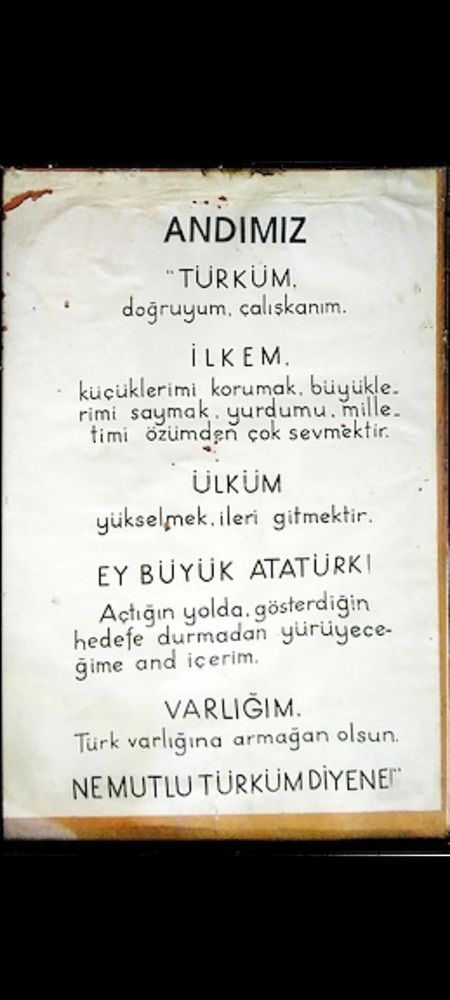 ANDIMIZ
"TÜRKÜM,
doğruyum, çalışkanım.
İLKEM,
küçüklerimi korumak, büyükle-
rimi saymak, yurdumu, mille-
timi özümden çok sevmektir.
ÜLKÜM
yükselmek, ileri gitmektir.
EY BÜYÜK ATATÜRK!
Açtığın yolda, gösterdiğin
hedefe durmadan yürüyece-
ğime and içerim.
VARLIĞIM,
Türk varlığına armağan olsun.
NE MUTLU TÜRKÜM DİYENE!"